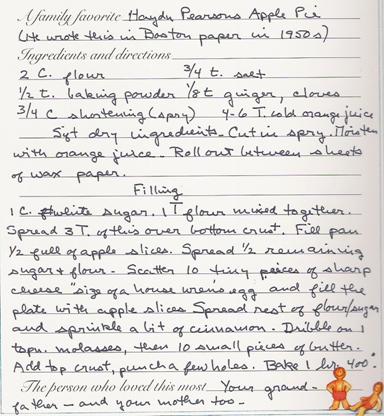 A family favorite Haydn Pearsons Apple Pie
(He wrote this in Boston paper in 1950s)
Ingredients and directions
2 C. flour 3/4 t. salt
1/2 t. baking powder 1/8 t ginger, cloves
3/4 C shortening (spry) 4-6 T. cold orange juice
Sift dry ingredients. Cut in spry. Moisten
with orange juice. Roll out between sheets
of wax paper.
Filling
1 C. white sugar. 1 T flour mixed together.
Spread 3 T. of this over bottom crust. Fill pan
1/2 full of apple slices. Spread 1/2 remaining
sugar & flour. Scatter 10 tiny pieces of sharp
cheese "size of a house wren's egg" and fill the
plate with apple slices Spread rest of flour/sugar
and sprinkle a bit of cinnamon. Dribble on 1
tspn. molasses, then 10 small pieces of butter.
Add top crust, punch a few holes. Bake 1 hr. 400°
The person who loved this most Your grand-
father - and your mother too -